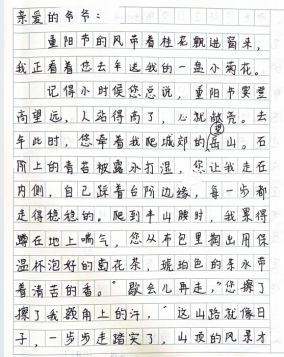 亲爱的爷爷：
重阳节的风带着桂花飘进窗来，
我正看着您去年送我的一盘小菊花。
记得小时候您总说，重阳节要登
高望远，人站得高了，心就敞亮。去
年此时，您牵着我爬城郊的岳山。石
阶上的青苔被露水打湿，您让我走在
内侧，自己踩着台阶边缘，每一步都
走得稳稳的。爬到半山腰时，我累得
蹲在地上喘气，您从布包里掏出用保
温杯泡好的菊花茶，琥珀色的茶水带
着清苦的香。“歇会儿再走，”您擦了
擦了我额角上的汗，“这山路就像日
子，一步步走踏实了，山顶的风景才